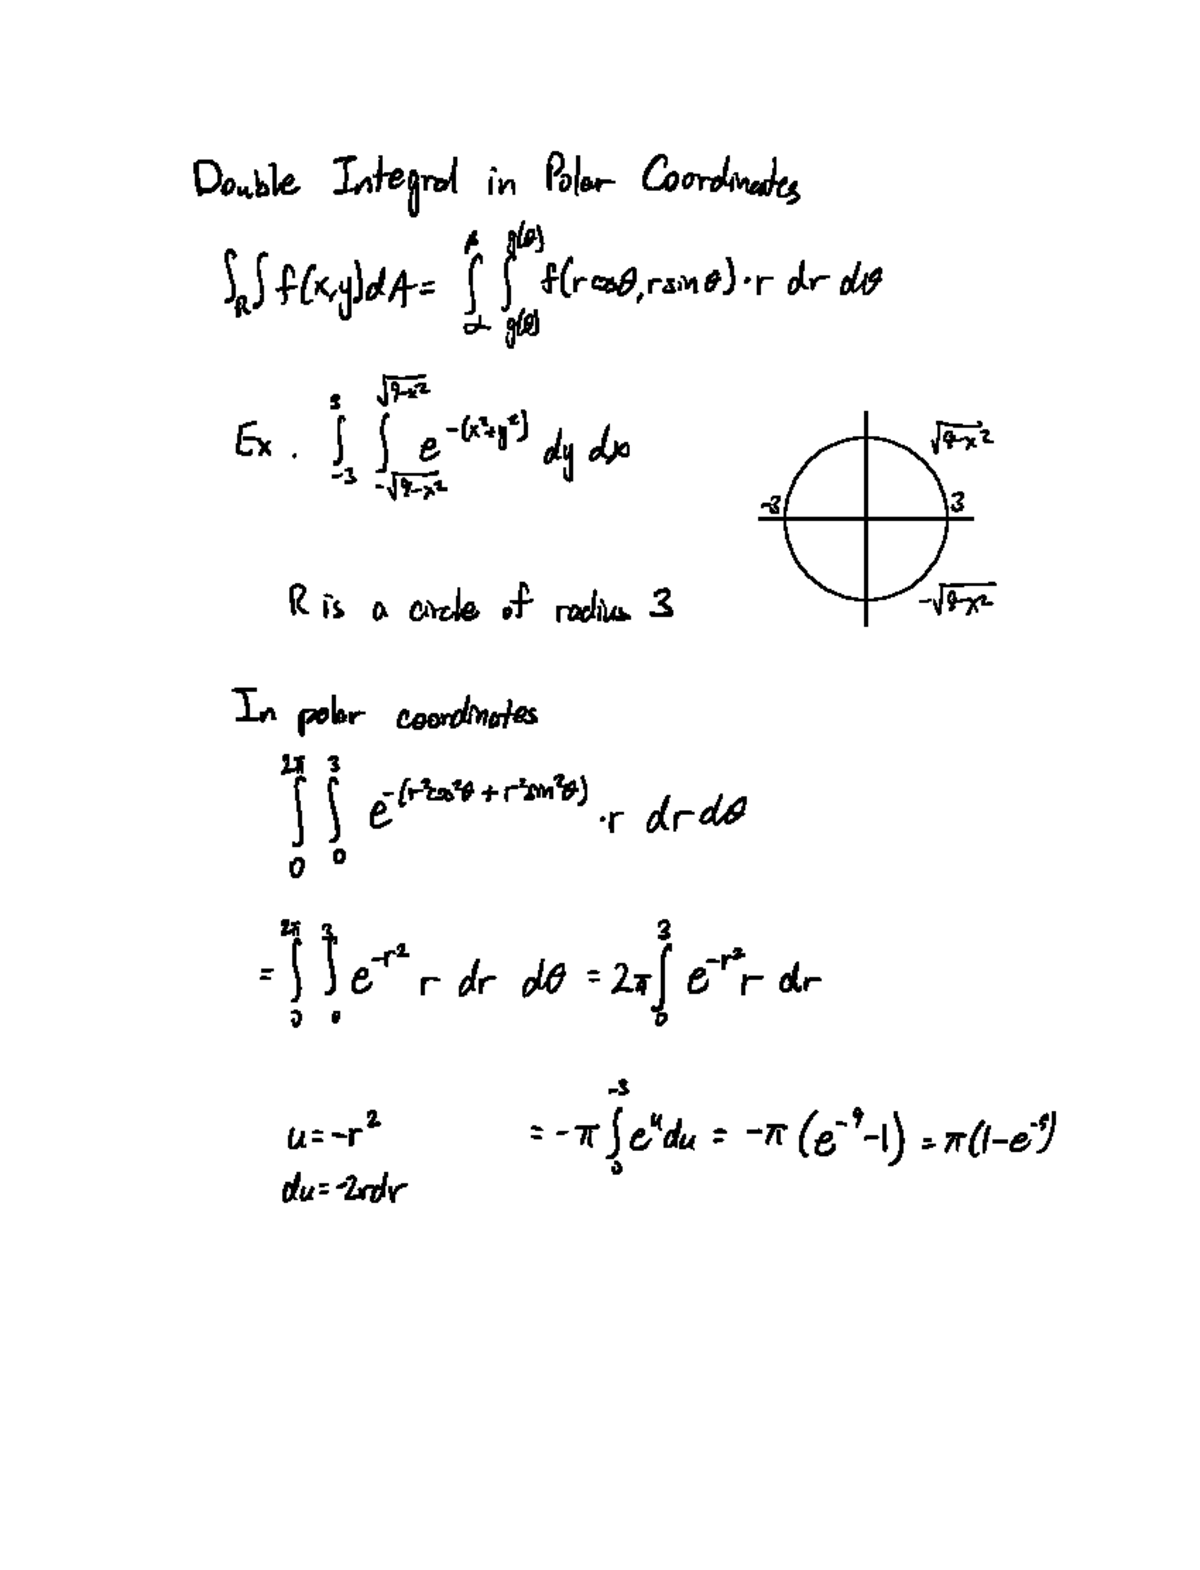 Double Integral in Polar Coordinates
∫_R∫ f(x,y)dA = ∫_α^β ∫_{g(θ)}^{g(θ)} f(r cosθ, r sinθ)·r dr dθ
Ex. ∫_{-3}^{3} ∫_{-√(9-x²)}^{√(9-x²)} e^{-(x²+y²)} dy dx
√(9-x²)
-3 3
-√(9-x²)
R is a circle of radius 3
In polar coordinates
∫_0^{2π} ∫_0^3 e^{-(r²cos²θ + r²sin²θ)} ·r dr dθ
= ∫_0^{2π} ∫_0^3 e^{-r²} r dr dθ = 2π ∫_0^3 e^{-r²} r dr
u = -r² = -π ∫_0^{-3} e^u du = -π (e^{-9}-1) = π(1-e^{-9})
du = -2rdr